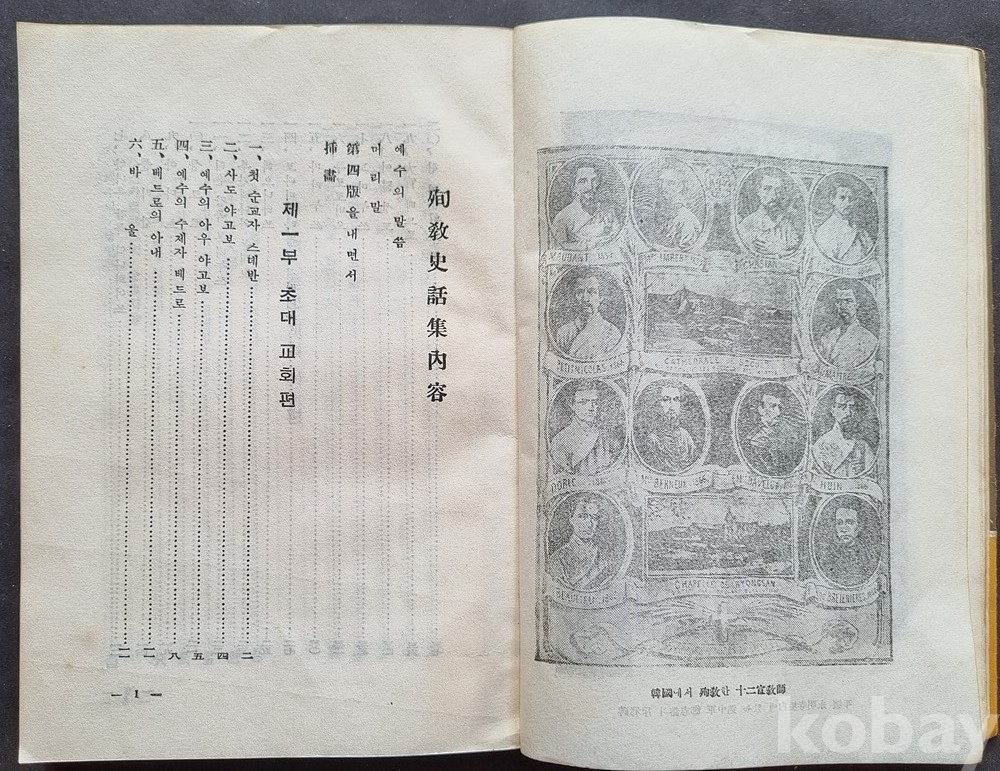 殉敎史話集內容
예수의 말씀
머리말
第四版을 내면서
揷畵
제一부 초대 교회편
一、첫 순교자 스데반 二
二、사도 야고보 四
三、예수의 아우 야고보 五
四、예수의 수제자 베드로 八
五、베드로의 아내
六、바울
— 1 —
MAUBANT 1839
Mgr IMBERT
CHASTAN
PETITNICOLAS
CATHEDRALE
DORIE
Mgr BERNEUX 1866
Mgr DAVELUY
HUIN 1866
BEAULIEU
CHAPELLE
BRETENIERES
韓國에서 殉敎한 十二宣敎師
kobay